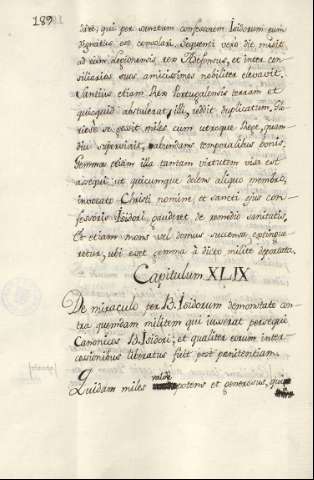 189
dare, qui per servum confessorem Isidorum eum
dignatus est consolari. Sequenti vero die misit
ad eum Legionensis rex Ildefonsus, et inter con-
siliarios suos amicissimos nobiliter elevavit.
Santius etiam Rex Portugalensis terram et
quicquid abstulerat illi, reddit duplicatum. Fi-
deliter se gessit miles cum utroque Rege, quam-
diu supervixit, abundans temporalibus bonis.
Gemma etiam illa tantam virtutem visa est
assequi, ut quicumque dolens aliquo membro,
invocato Christi nomine, et sancti ejus con-
fessoris Isidori, gauderet de remedio sanitatis,
Et etiam mons vel domus succensa extingue-
retur, ubi esset gemma à dicto milite deportata.
Capitulum XLIX
De miraculo per B. Isidorum demonstrato con-
tra quemdam militem qui iusserat persequi
Canonicos B. Isidori, et qualiter eorum inter-
cesionibus liberatus fuit post penitentiam.
Quidam miles valde potens et generosus, qui